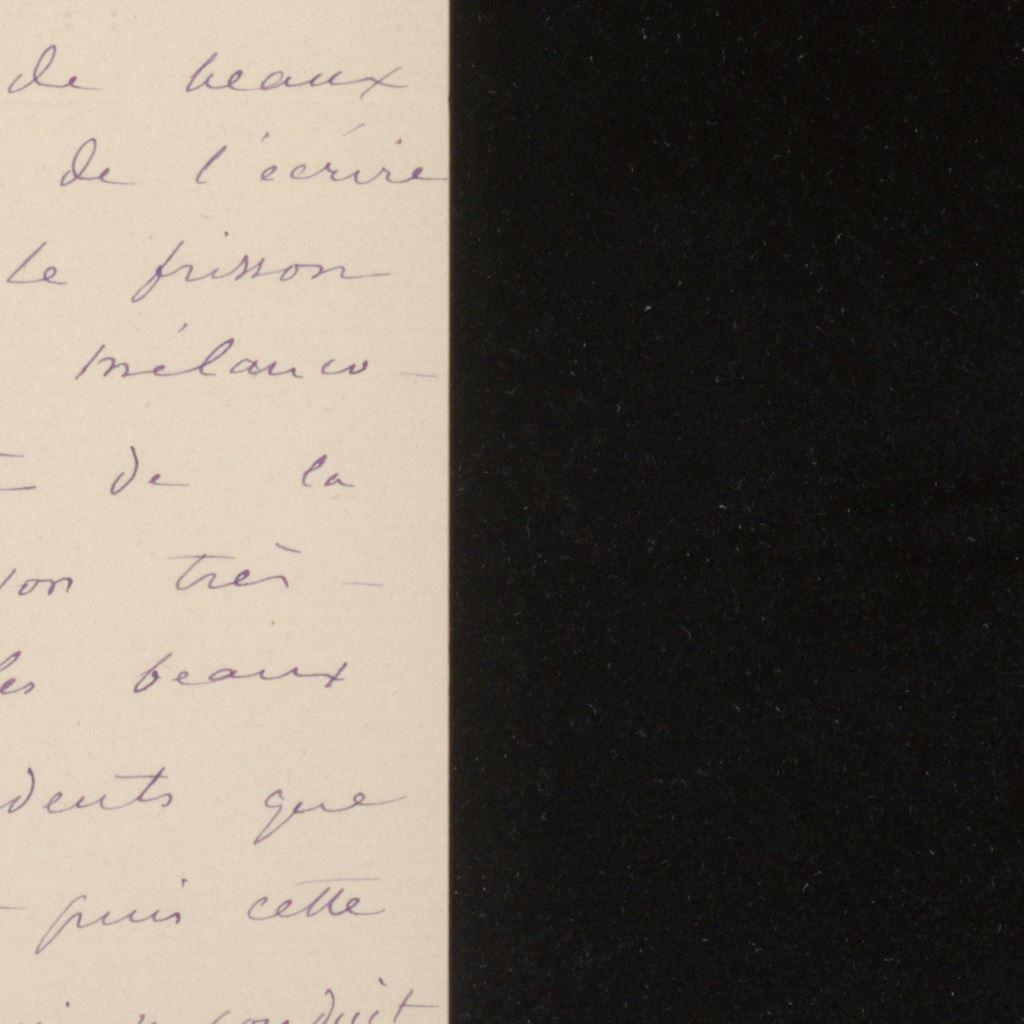 de beaux
de l'écrire
le frisson
mélanco-
de la
très-
les beaux
dents que
puis cette
conduit